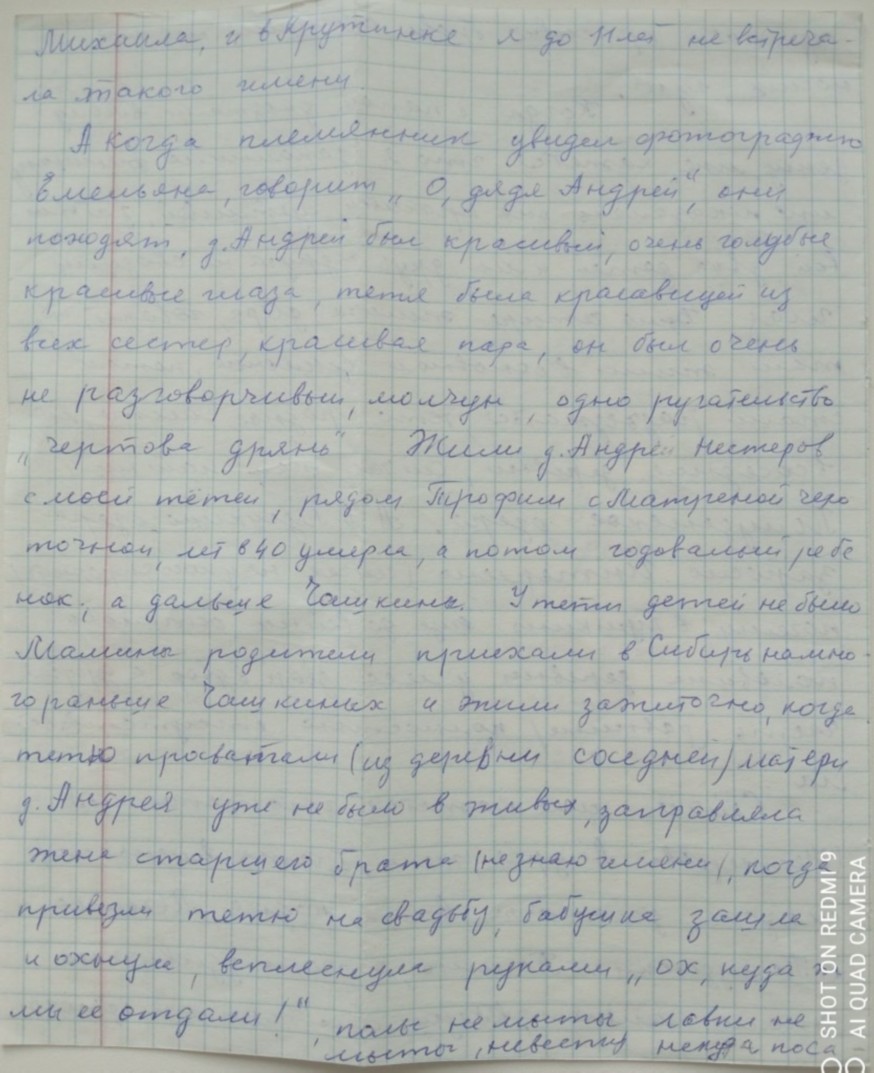 Михаила, и в Крутинке я до 11 лет не встреча-
ла такого имени.
А когда племянник увидел фотографию
Емельяна, говорит „О, дядя Андрей", они
походят, д. Андрей был красивый, очень голубые
красивые глаза, тетя была красавицей из
всех сестер, красивая пара, он был очень
не разговорчивый, молчун, одно ругательство
„чертова дрянь" Жили д. Андрей Нестеров
с моей тётей, рядом Трофим с Матреной чехо
точной, лет в 40 умерла, а потом годовалый ребе
нок, а дальше Чашкины. У тети детей не было
Мамины родители приехали в Сибирь намно-
го раньше Чашкиных и жили зажиточно, когда
тетю просватали (из деревни соседней) матери
д. Андрея уже не было в живых, заправляла
жена старшего брата (не знаю имени), когда
привезли тетю на свадьбу, бабушка зашла
и охнула, всплеснула руками „ох, куда
мы ее отдали!", полы не мыты лавки не
мыты, невесту некуда поса
SHOT ON REDMI 9
AI QUAD CAMERA